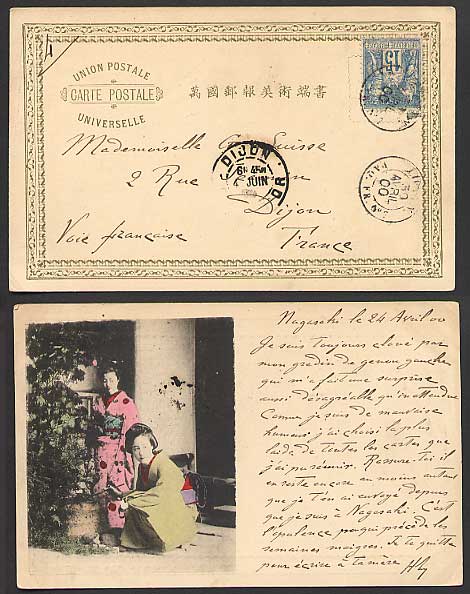 UNION POSTALE
CARTE POSTALE
UNIVERSELLE
萬國郵報美術端書
15
Mademoiselle Suisse
2 Rue
Dijon
Voie française
France
DIJON
4 JUIN
OR
30
AVRIL
00
Nagasaki le 24 Avril 00
Je suis toujours cloué par
mon gredin de genou gauche
qui m'a fait une surprise
aussi désagréable qu'inattendue
Comme je suis de mauvaise
humeur j'ai choisi la plus
laide de toutes les cartes que
j'ai pu réunir. Rassure-toi il
en reste encore au moins autant
que je t'en ai envoyé depuis
que je suis à Nagasaki. C'est
l'opulence puisqu'il précède les
semaines maigres. Je te quitte
pour écrire à ta mère